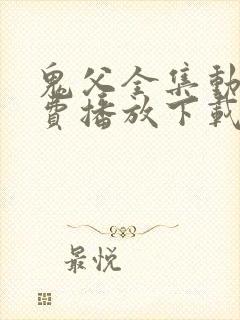 鬼父全集動
費播放下載
最悦